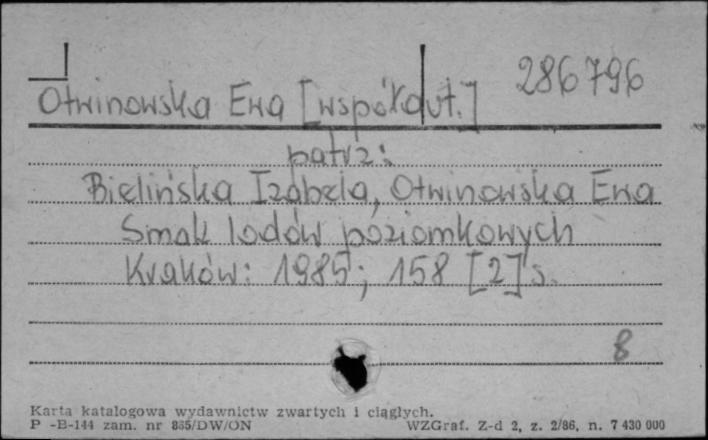 286796
Otwinowska Ewa [współaut.]
patrz:
Bielińska Izabela, Otwinowska Ewa
Smak lodów poziomkowych
Kraków: 1985; 158 [2] s.
8
Karta katalogowa wydawnictw zwartych i ciągłych.
P -B-144 zam. nr 835/DW/ON WZGraf. Z-d 2, z. 2/86, n. 7 430 000